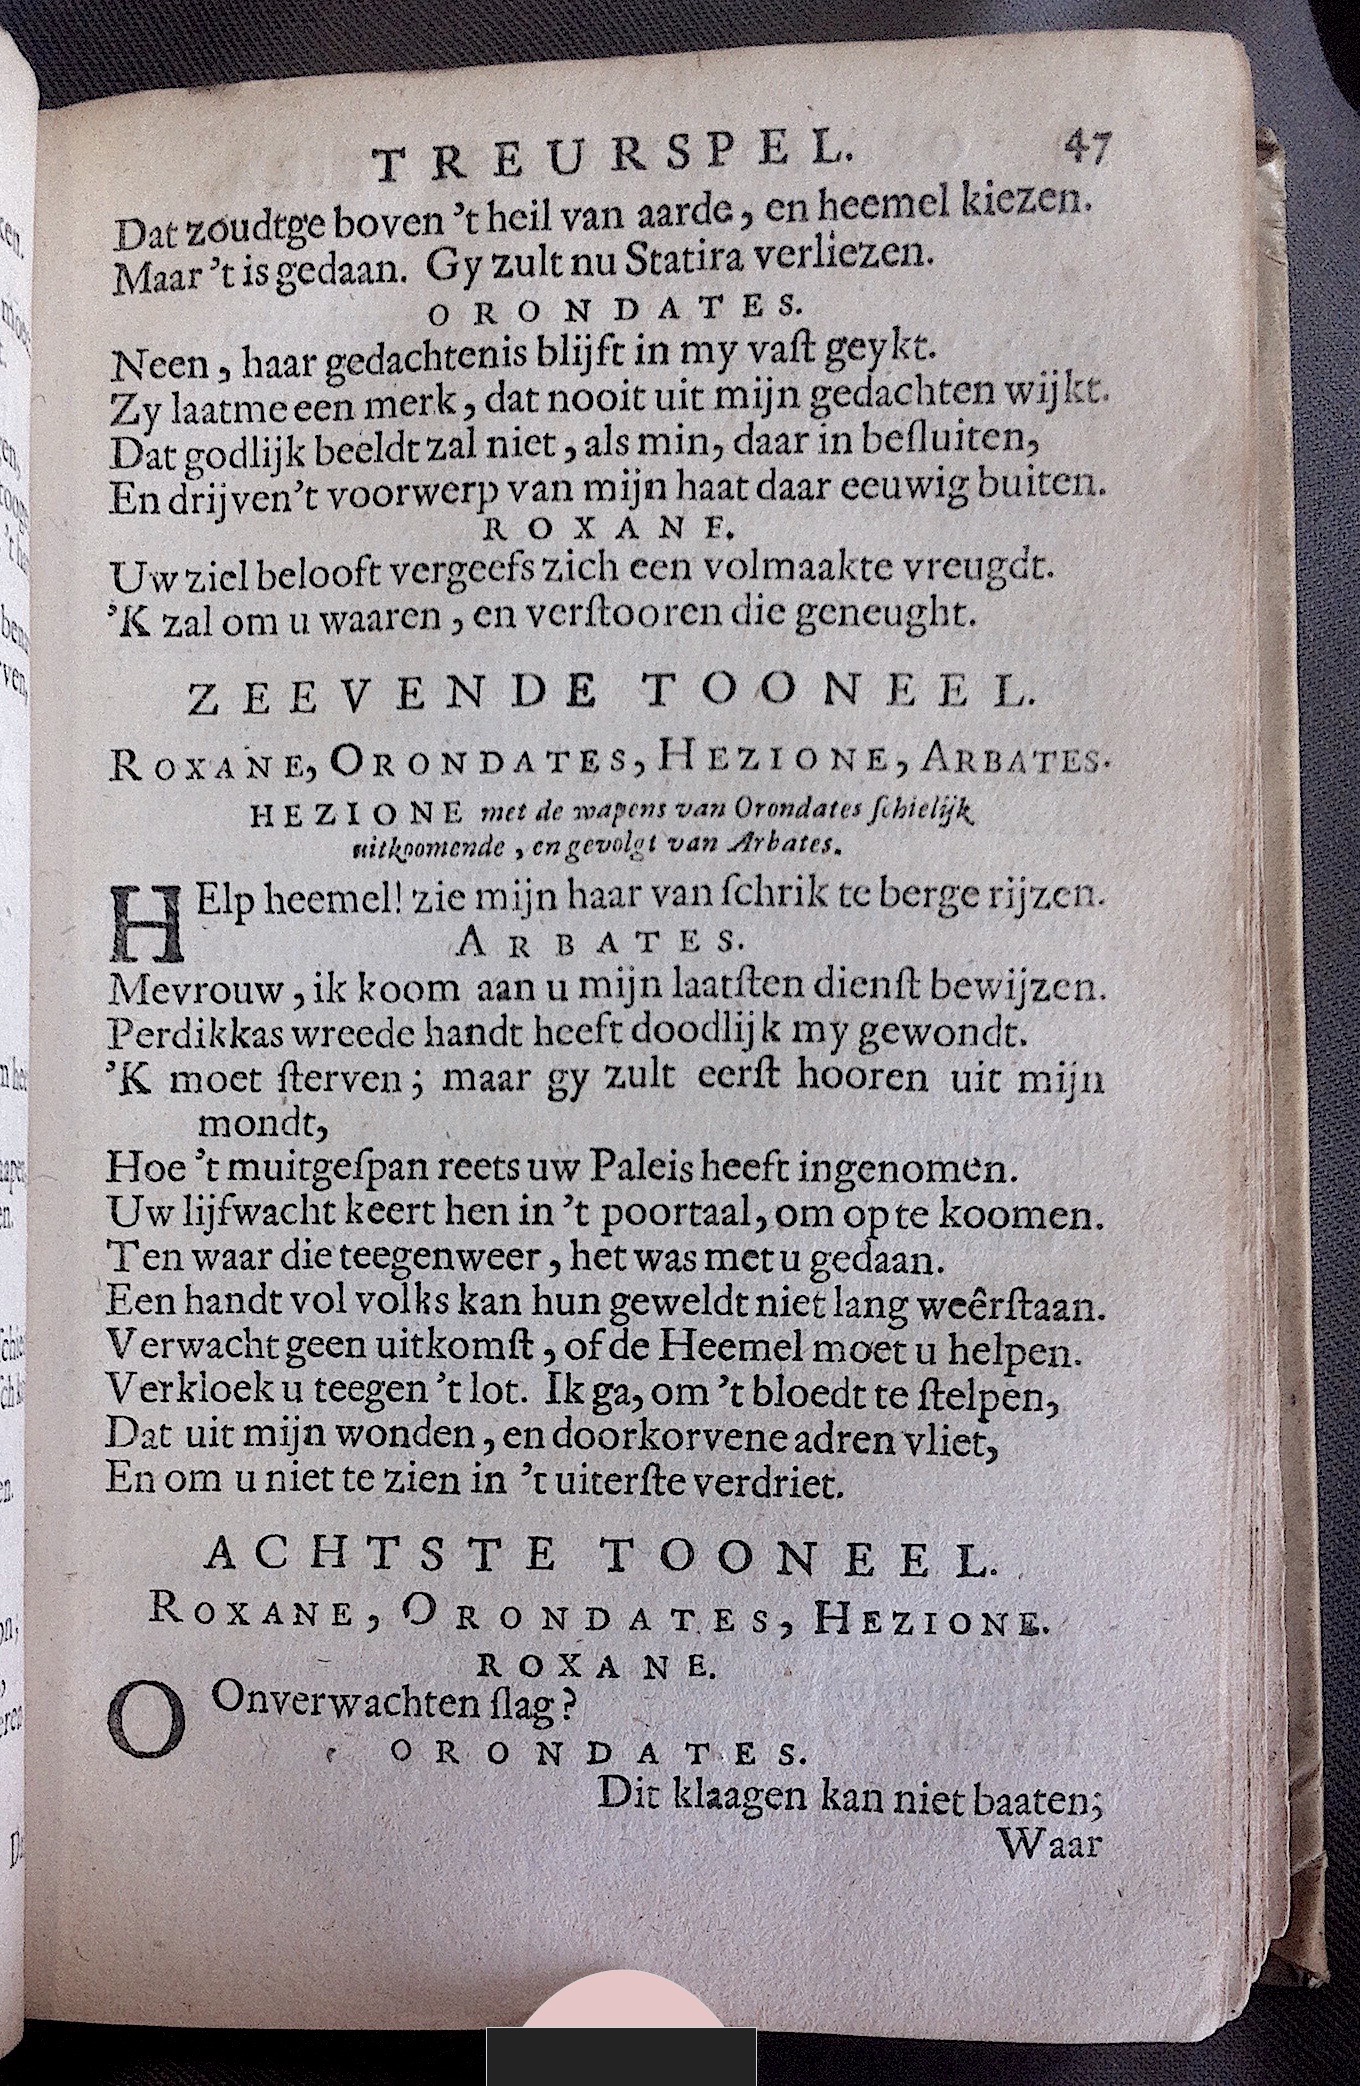 TREURSPEL. 47
Dat zoudtge boven 't heil van aarde, en heemel kiezen.
Maar 't is gedaan. Gy zult nu Statira verliezen.
ORONDATES.
Neen, haar gedachtenis blijft in my vaſt geykt.
Zy laatme een merk, dat nooit uit mijn gedachten wijkt.
Dat godlijk beeldt zal niet, als min, daar in beſluiten,
En drijven 't voorwerp van mijn haat daar eeuwig buiten.
ROXANE.
Uw ziel belooft vergeefs zich een volmaakte vreugdt.
'K zal om u waaren, en verſtooren die geneught.
ZEEVENDE TOONEEL.
ROXANE, ORONDATES, HEZIONE, ARBATES.
HEZIONE met de wapens van Orondates ſchielijk
uitkoomende, en gevolgt van Arbates.
HElp heemel! zie mijn haar van ſchrik te berge rijzen.
ARBATES.
Mevrouw, ik koom aan u mijn laatſten dienſt bewijzen.
Perdikkas wreede handt heeft doodlijk my gewondt.
'K moet ſterven; maar gy zult eerſt hooren uit mijn
mondt,
Hoe 't muitgeſpan reets uw Paleis heeft ingenomen.
Uw lijfwacht keert hen in 't poortaal, om op te koomen.
Ten waar die teegenweer, het was met u gedaan.
Een handt vol volks kan hun geweldt niet lang weêrſtaan.
Verwacht geen uitkomſt, of de Heemel moet u helpen.
Verkloek u teegen 't lot. Ik ga, om 't bloedt te ſtelpen,
Dat uit mijn wonden, en doorkorvene adren vliet,
En om u niet te zien in 't uiterſte verdriet.
ACHTSTE TOONEEL.
ROXANE, ORONDATES, HEZIONE.
ROXANE.
O Onverwachten ſlag?
ORONDATES.
Dit klaagen kan niet baaten;
Waar